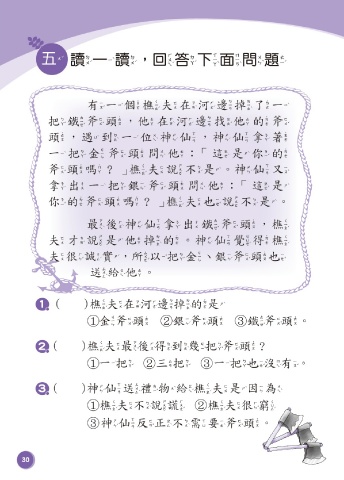 五 讀一讀，回答下面問題
有一個樵夫在河邊掉了一
把鐵斧頭，他在河邊找他的斧
頭，遇到一位神仙，神仙拿著
一把金斧頭問他：「這是你的
斧頭嗎？」樵夫說不是。神仙又
拿出一把銀斧頭問他：「這是
你的斧頭嗎？」樵夫也說不是。
最後神仙拿出鐵斧頭，樵
夫才說是他掉的。神仙覺得樵
夫很誠實，所以把金、銀斧頭也
送給他。
1 (　　)樵夫在河邊掉的是
①金斧頭 ②銀斧頭 ③鐵斧頭。
2 (　　)樵夫最後得到幾把斧頭？
①一把 ②三把 ③一把也沒有。
3 (　　)神仙送禮物給樵夫是因為
①樵夫不說謊 ②樵夫很窮
③神仙反正不需要斧頭。
30